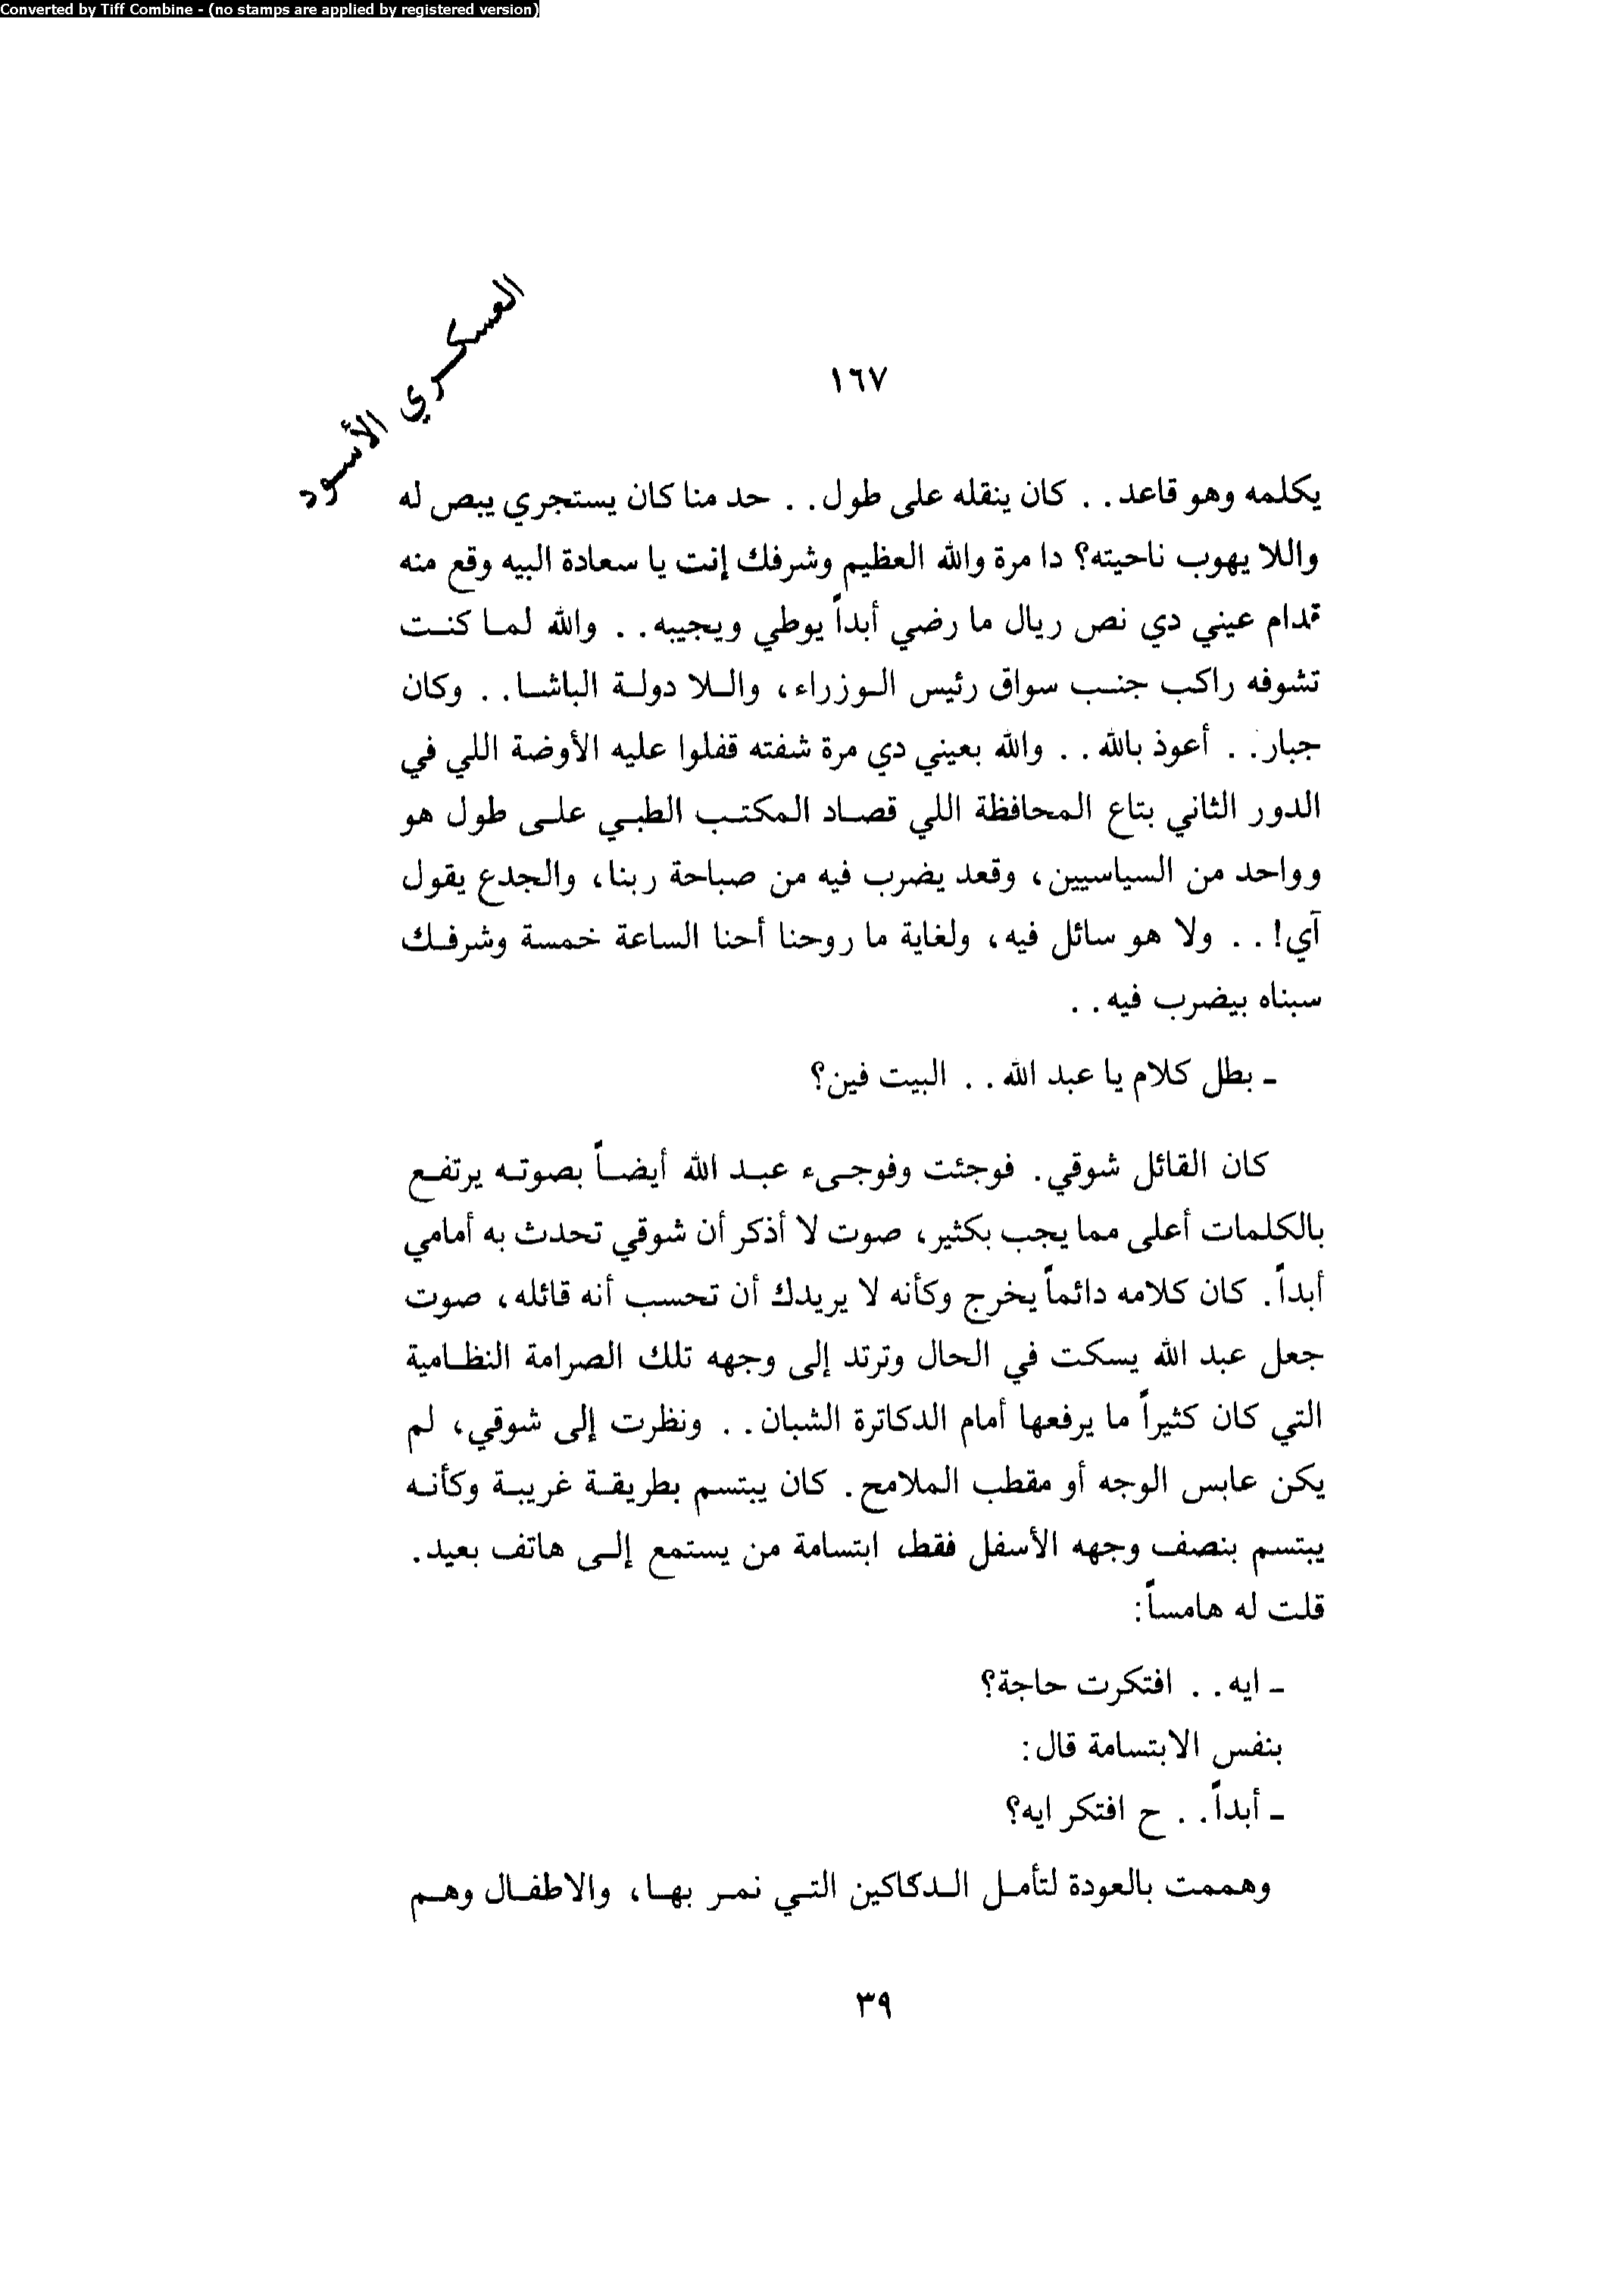 Converted by Tiff Combine - (no stamps are applied by registered version)
العسكري الأسود
١٦٧
يكلمه وهو قاعد.. كان ينقله على طول.. حد منا كان يستجري يبص له
واللا يهوب ناحيته؟ دا مرة والله العظيم وشرفك إنت يا سعادة البيه وقع منه
قدام عيني دي نص ريال ما رضي أبداً يوطي ويجيبه.. والله لما كنت
تشوفه راكب جنب سواق رئيس الوزراء، واللا دولة الباشا.. وكان
جبار.. أعوذ بالله.. والله بعيني دي مرة شفته قفلوا عليه الأوضة اللي في
الدور الثاني بتاع المحافظة اللي قصاد المكتب الطبي على طول هو
وواحد من السياسيين، وقعد يضرب فيه من صباحة ربنا، والجدع يقول
آي!.. ولا هو سائل فيه، ولغاية ما روحنا أحنا الساعة خمسة وشرفك
سبناه بيضرب فيه..
ـ بطل كلام يا عبد الله.. البيت فين؟
كان القائل شوقي. فوجئت وفوجىء عبد الله أيضاً بصوته يرتفع
بالكلمات أعلى مما يجب بكثير، صوت لا أذكر أن شوقي تحدث به أمامي
أبداً. كان كلامه دائماً يخرج وكأنه لا يريدك أن تحسب أنه قائله، صوت
جعل عبد الله يسكت في الحال وترتد إلى وجهه تلك الصرامة النظامية
التي كان كثيراً ما يرفعها أمام الدكاترة الشبان.. ونظرت إلى شوقي، لم
يكن عابس الوجه أو مقطب الملامح. كان يبتسم بطريقة غريبة وكأنه
يبتسم بنصف وجهه الأسفل فقط، ابتسامة من يستمع إلى هاتف بعيد.
قلت له هامساً:
ـ ايه.. افتكرت حاجة؟
بنفس الابتسامة قال:
ـ أبداً.. ح افتكر ايه؟
وهممت بالعودة لتأمل الدكاكين التي نمر بها، والاطفال وهم
٣٩